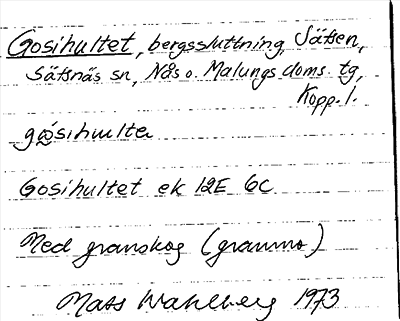 Gosihultet, bergssluttning, Säfsen,
Säfsnäs sn, Nås o. Malungs doms. tg,
Kopp. l.
Gosihultet ek 12E 6C
Med granskog (grammo)
Mats Wahlberg 1973